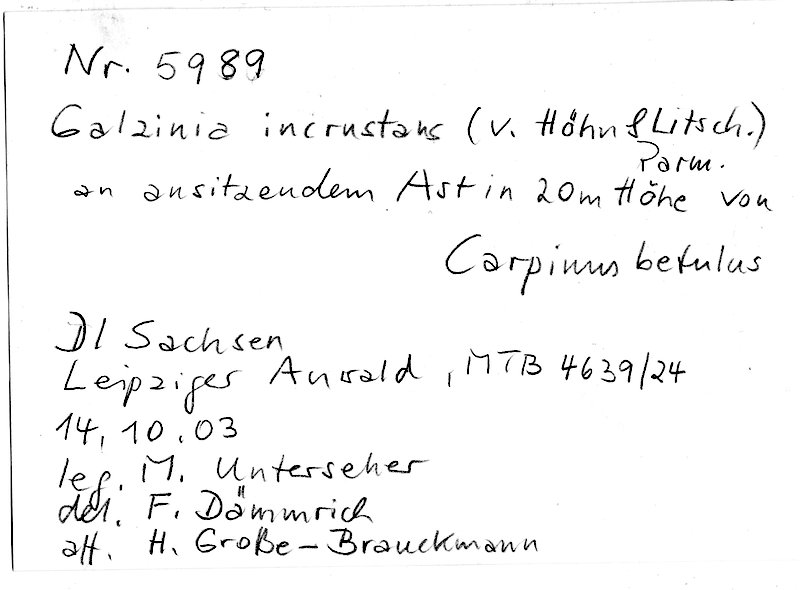 Nr. 5989
Galzinia incrustans (v. Höhn & Litsch.)
Parm.
an ansitzendem Ast in 20m Höhe von
Carpinus betulus
D/ Sachsen
Leipziger Auwald, MTB 4639/24
14.10.03
leg. M. Unterseher
det. F. Dämmrich
att. H. Große-Brauckmann